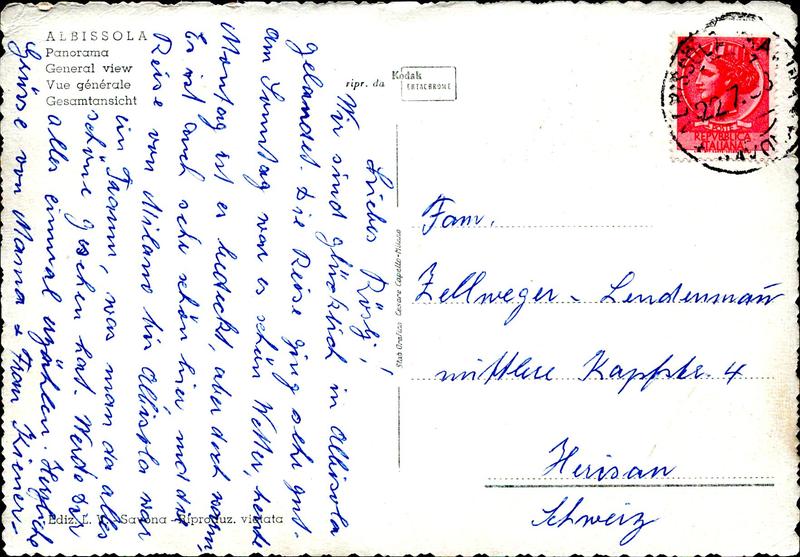 ALBISSOLA
Panorama
General view
Vue générale
Gesamtansicht
ripr. da Kodak
EKTACHROME
Liebes Rösli!
Wir sind glücklich in Albisola
gelandet. Die Reise ging sehr gut.
am Sonntag war es schön Wetter, heute
Montag ist es bedeckt, aber doch warm
Es ist auch sehr schön hier und die
Reise von Milano bis Albisola war
ein Traum, was man da alles
schöne gesehen hat. Werde Dir
alles einmal erzählen. Herzliche
Grüsse von Mama & Frau Kiener
Ediz. L. Savona - Riproduz. vietata
Stab Grafico Cesare Capello - Milano
POSTE
REPVBBLICA
ITALIANA
22.7.
Fam.
Zellweger - Lendenmann
mittlere Kappstr. 4
Herisau
Schweiz